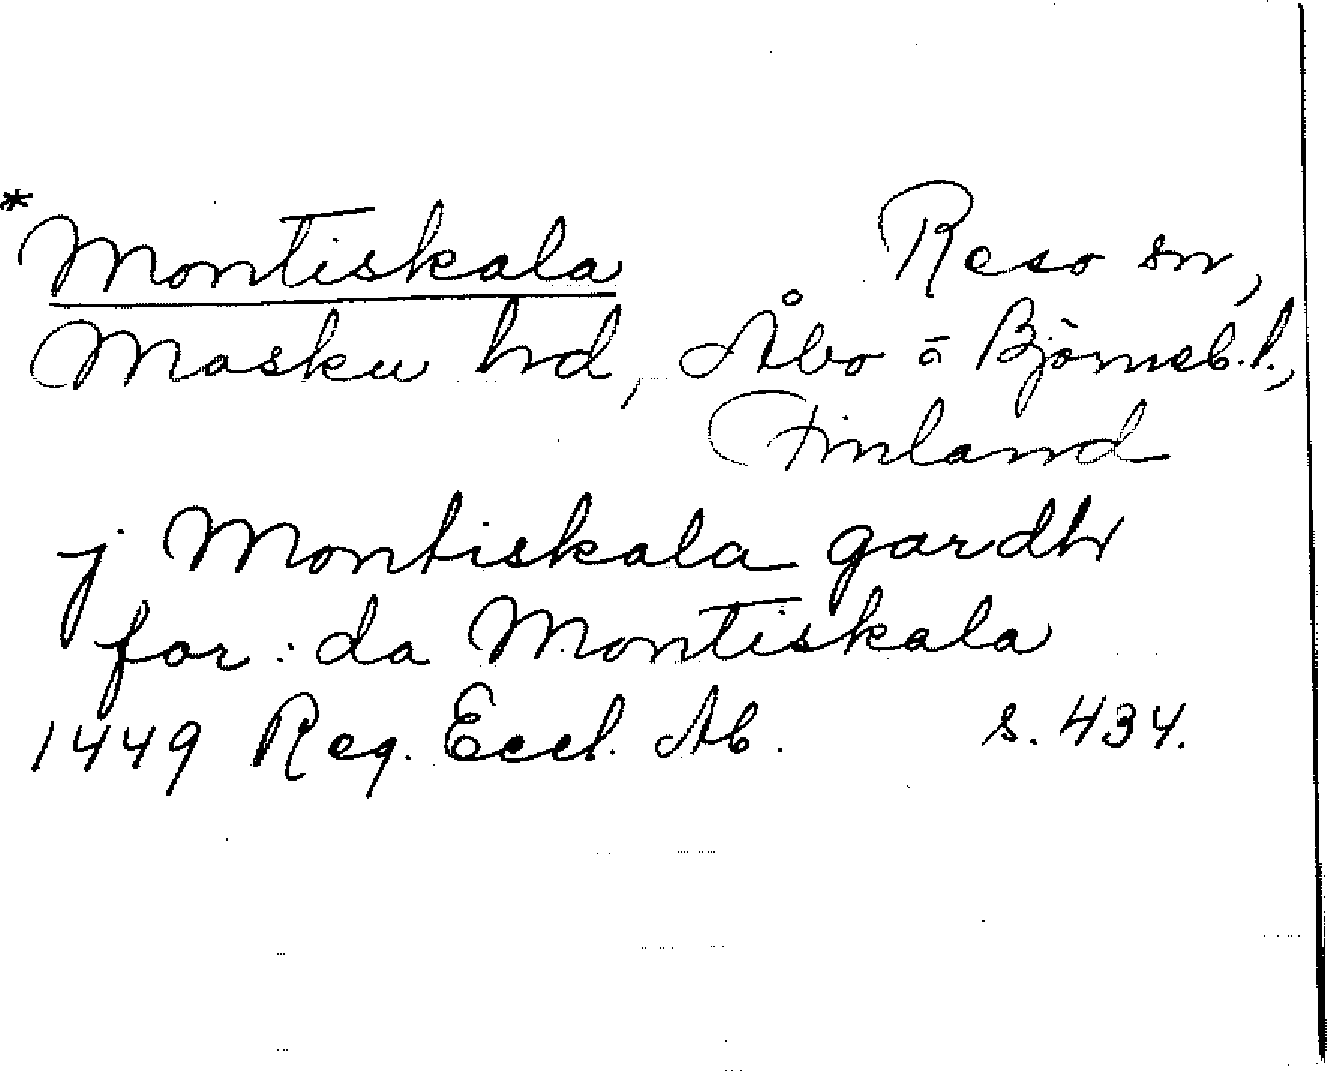 *Montiskala Reso sn,
Masku hd, Åbo o Björneb. l.,
Finland
j Montiskala gardhr
for: da Montiskala
1449 Reg. Eccl. Ab. s. 434.